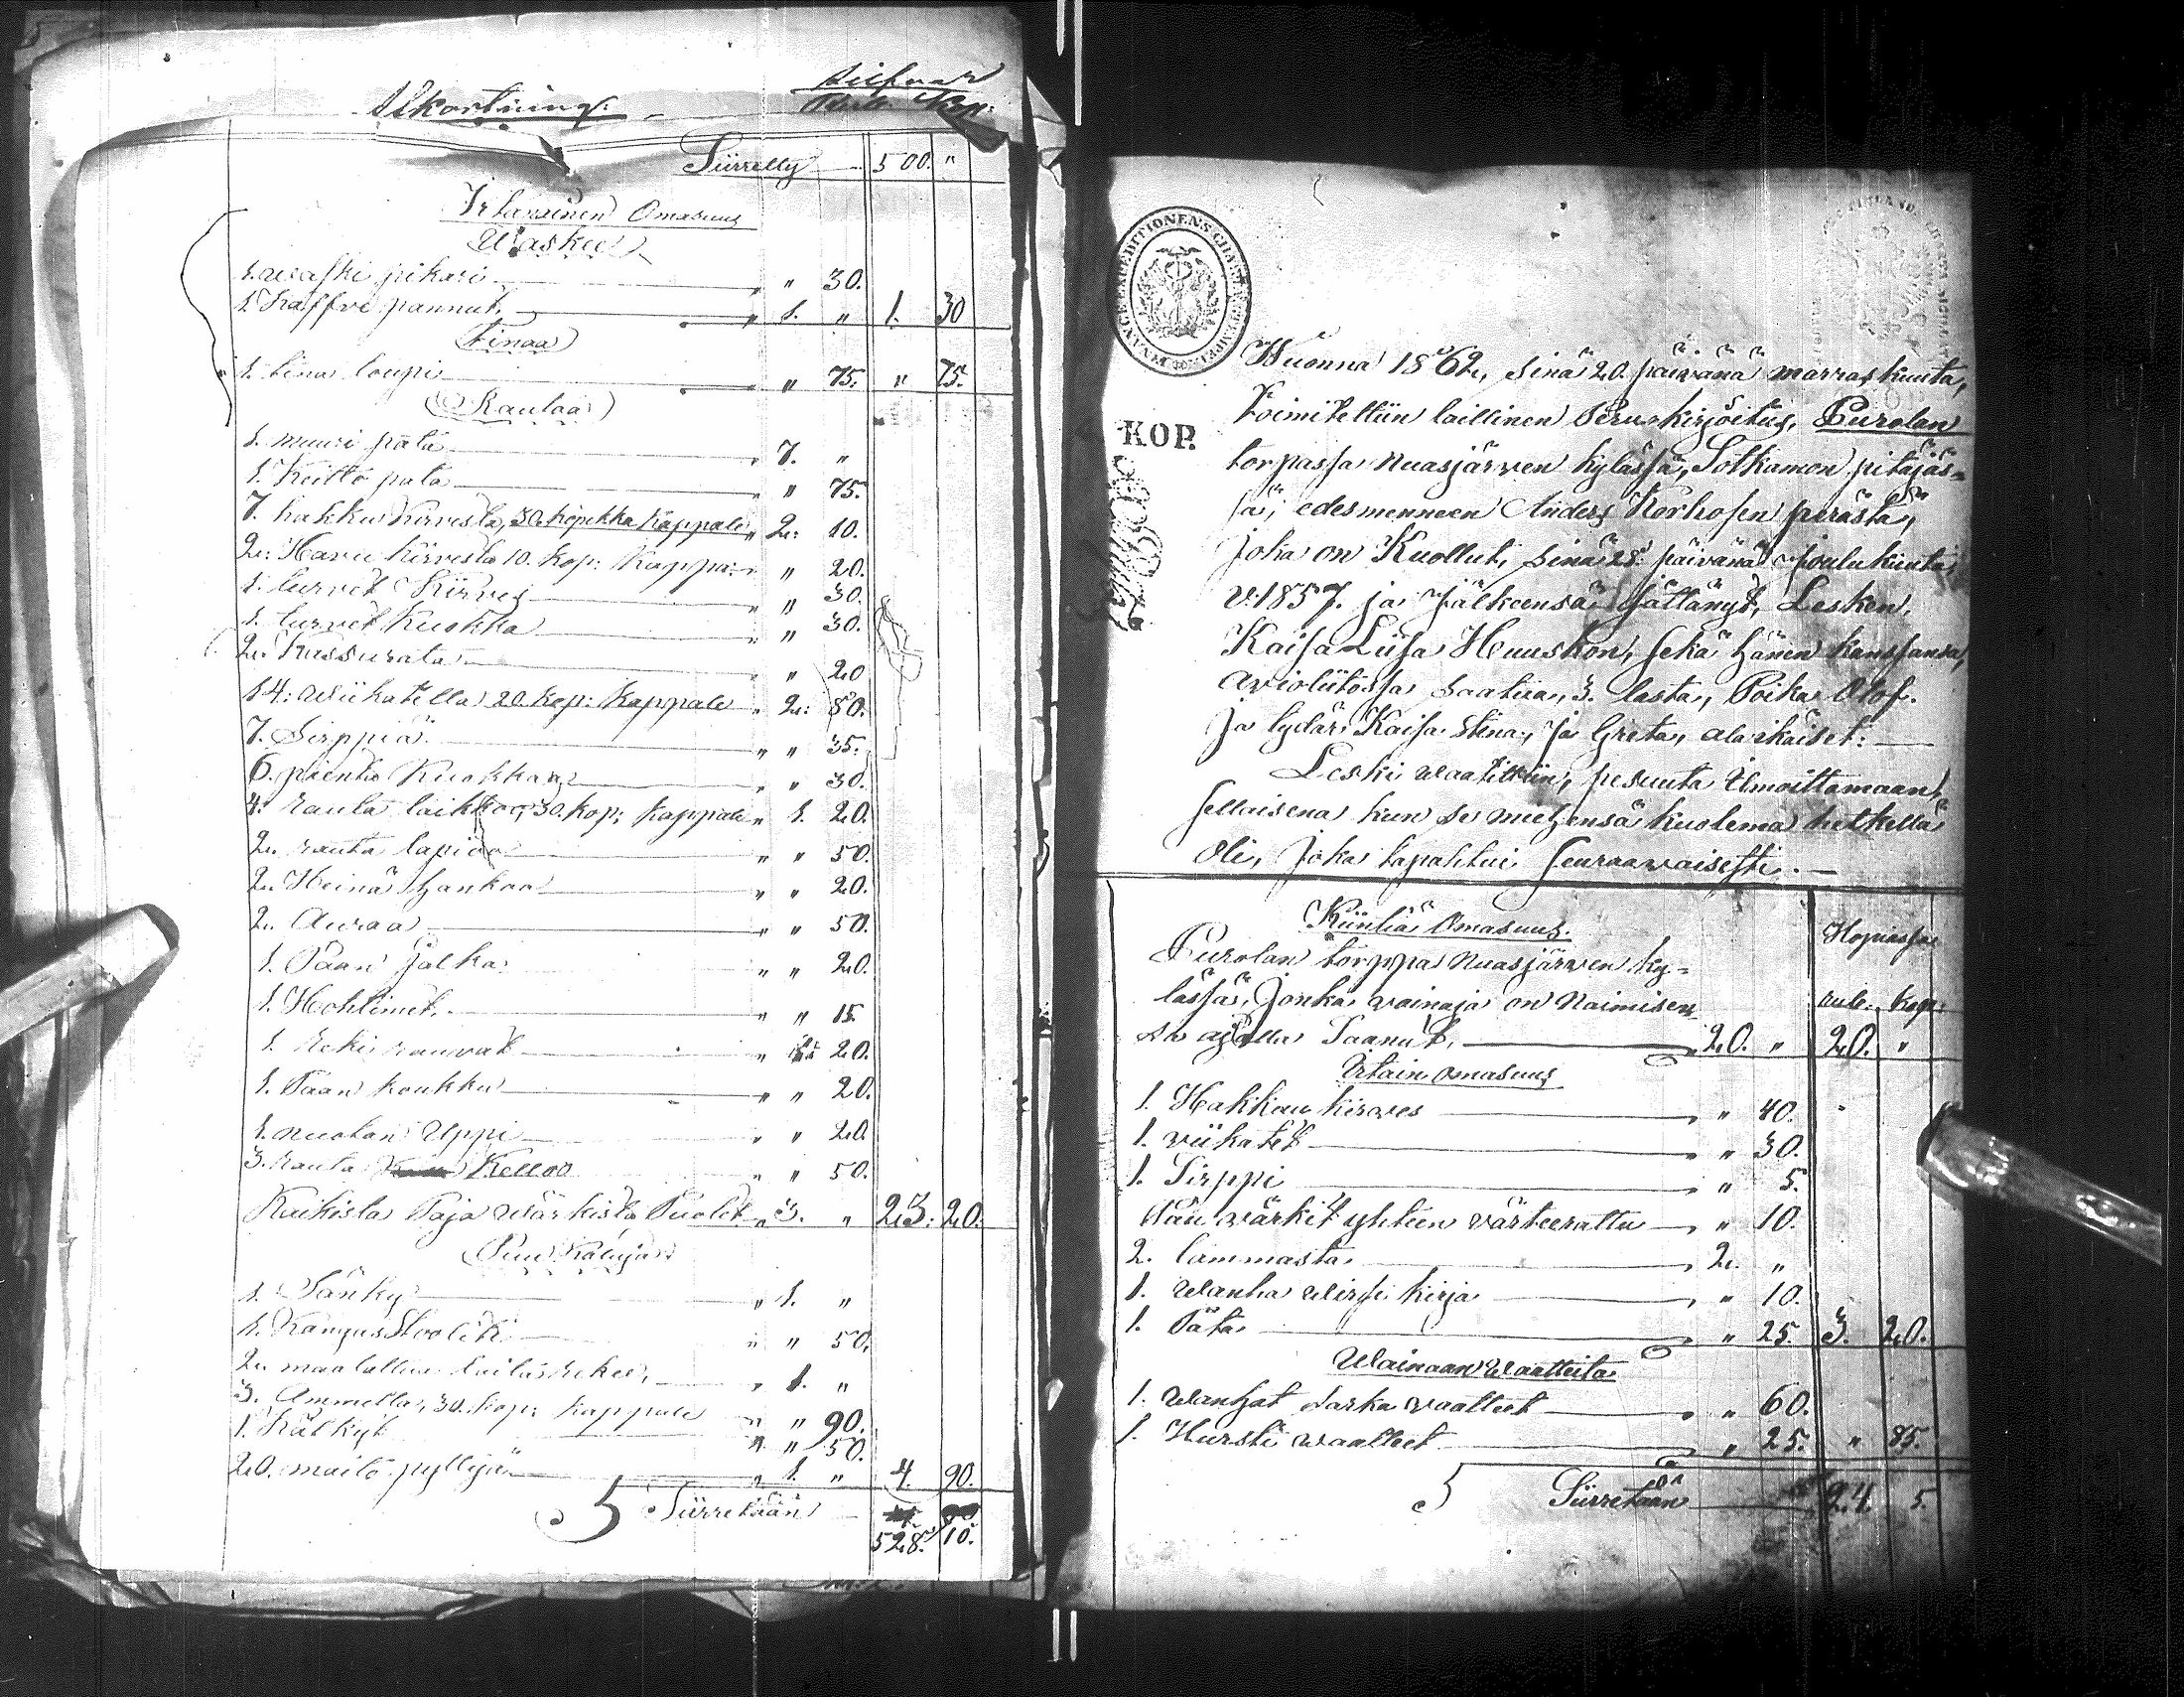 Siirretty 500. "
Irtanainen Omasuus
Waskea
1. waski pikari " " 30.
1. kaffve pannut " 1. " 1. 30
Tinaa
1. tina loupi " 75. " 75.
Rautaa
1. muuri pata " 7. "
1. Keitto pata " " 75.
7. hakku kirvestä, 30. kopekka kappale " 2. 10.
2. Havu kirvestä 10. kop: kappa: " " 20.
1. turvet Kirves " " 30.
1. turvet Kuokka " " 30.
2. Kassurata " " 20
14. wiikatetta 20. kop: kappale " 2. 80.
7. Sirppiä " " 35.
6. pientä Kuokkaa " " 30.
4. rauta laikkoa, 30. kop: kappale " 1. 20.
2. rauta lapioa " " 50.
2. Heinä hankoa " " 20.
2. Auraa " " 50.
1. Paan jalka " " 20.
1. Hohtimet " " 15.
1. Reki rauvat " 20.
1. Paan koukku " " 20.
1. nuotan Uppi " " 20.
3. rauta Kelloa " " 50.
Kaikista Paja wärkistä Puolet " 3. " 23. 20.
Puu Kaluja
1. Sänky " 1. "
1. Kangus Stooli " " 50.
2. maalattua laita rekee, " 1. "
3. Ammetta, 30. kop: kappale " " 90.
1. Kälkyt " " 50.
20. maito pyttyjä " 1. " 4. 90.
Siirretään
528. 10.
FINANCE EXPEDITIONENS CHARTÆ STEMPEL
KOP.
Wuonna 1862, sinä 20. päivänä marraskuuta,
toimitettiin laillinen Perunkirjoitus, Purolan
torpassa Nuasjärven kylässä, Sotkamon pitäjäs=
sä, edesmenneen Anders Korhosen perästä,
joka on Kuollut, sinä 28. päivänä Joulukuuta
v: 1857. ja jälkeensä jättänyt, Lesken,
Kaisa Liisa Huuskon, sekä hänen kanssansa,
avioliitossa saatua, 3. lasta, Poika Olof.
ja tydär Kaisa Stina, ja Greta, ala ikäiset:
Leski waatittiin, pesuuta ilmoittamaan
sellaisena kun se miehensä kuolema hetkellä
oli, joka tapahtui seuraawaisesti.
Kiintiä Omasuus. Hopiassa
Purolan torppa Nuasjärven ky=
lässä, jonka vainaja on Naimisen
sa ajalla Saanut, 20. " 20. "
rule. kop:
Irtain omasuus
1. Hakkau kirves " " 40.
1. viikatet " " 30.
1. Sirppi " " 5.
Puu wärkit yhteen värteerattu " " 10.
2. lammasta " 2. "
1. Wanha Wirsi kirja " " 10.
1. Pata " " 25. 3. 20.
Wainaan Waatteita
1. Wanhat sarka waatteet " " 60.
1. Hursti waatteet " " 25. " 85.
Siirretään 24. 5.